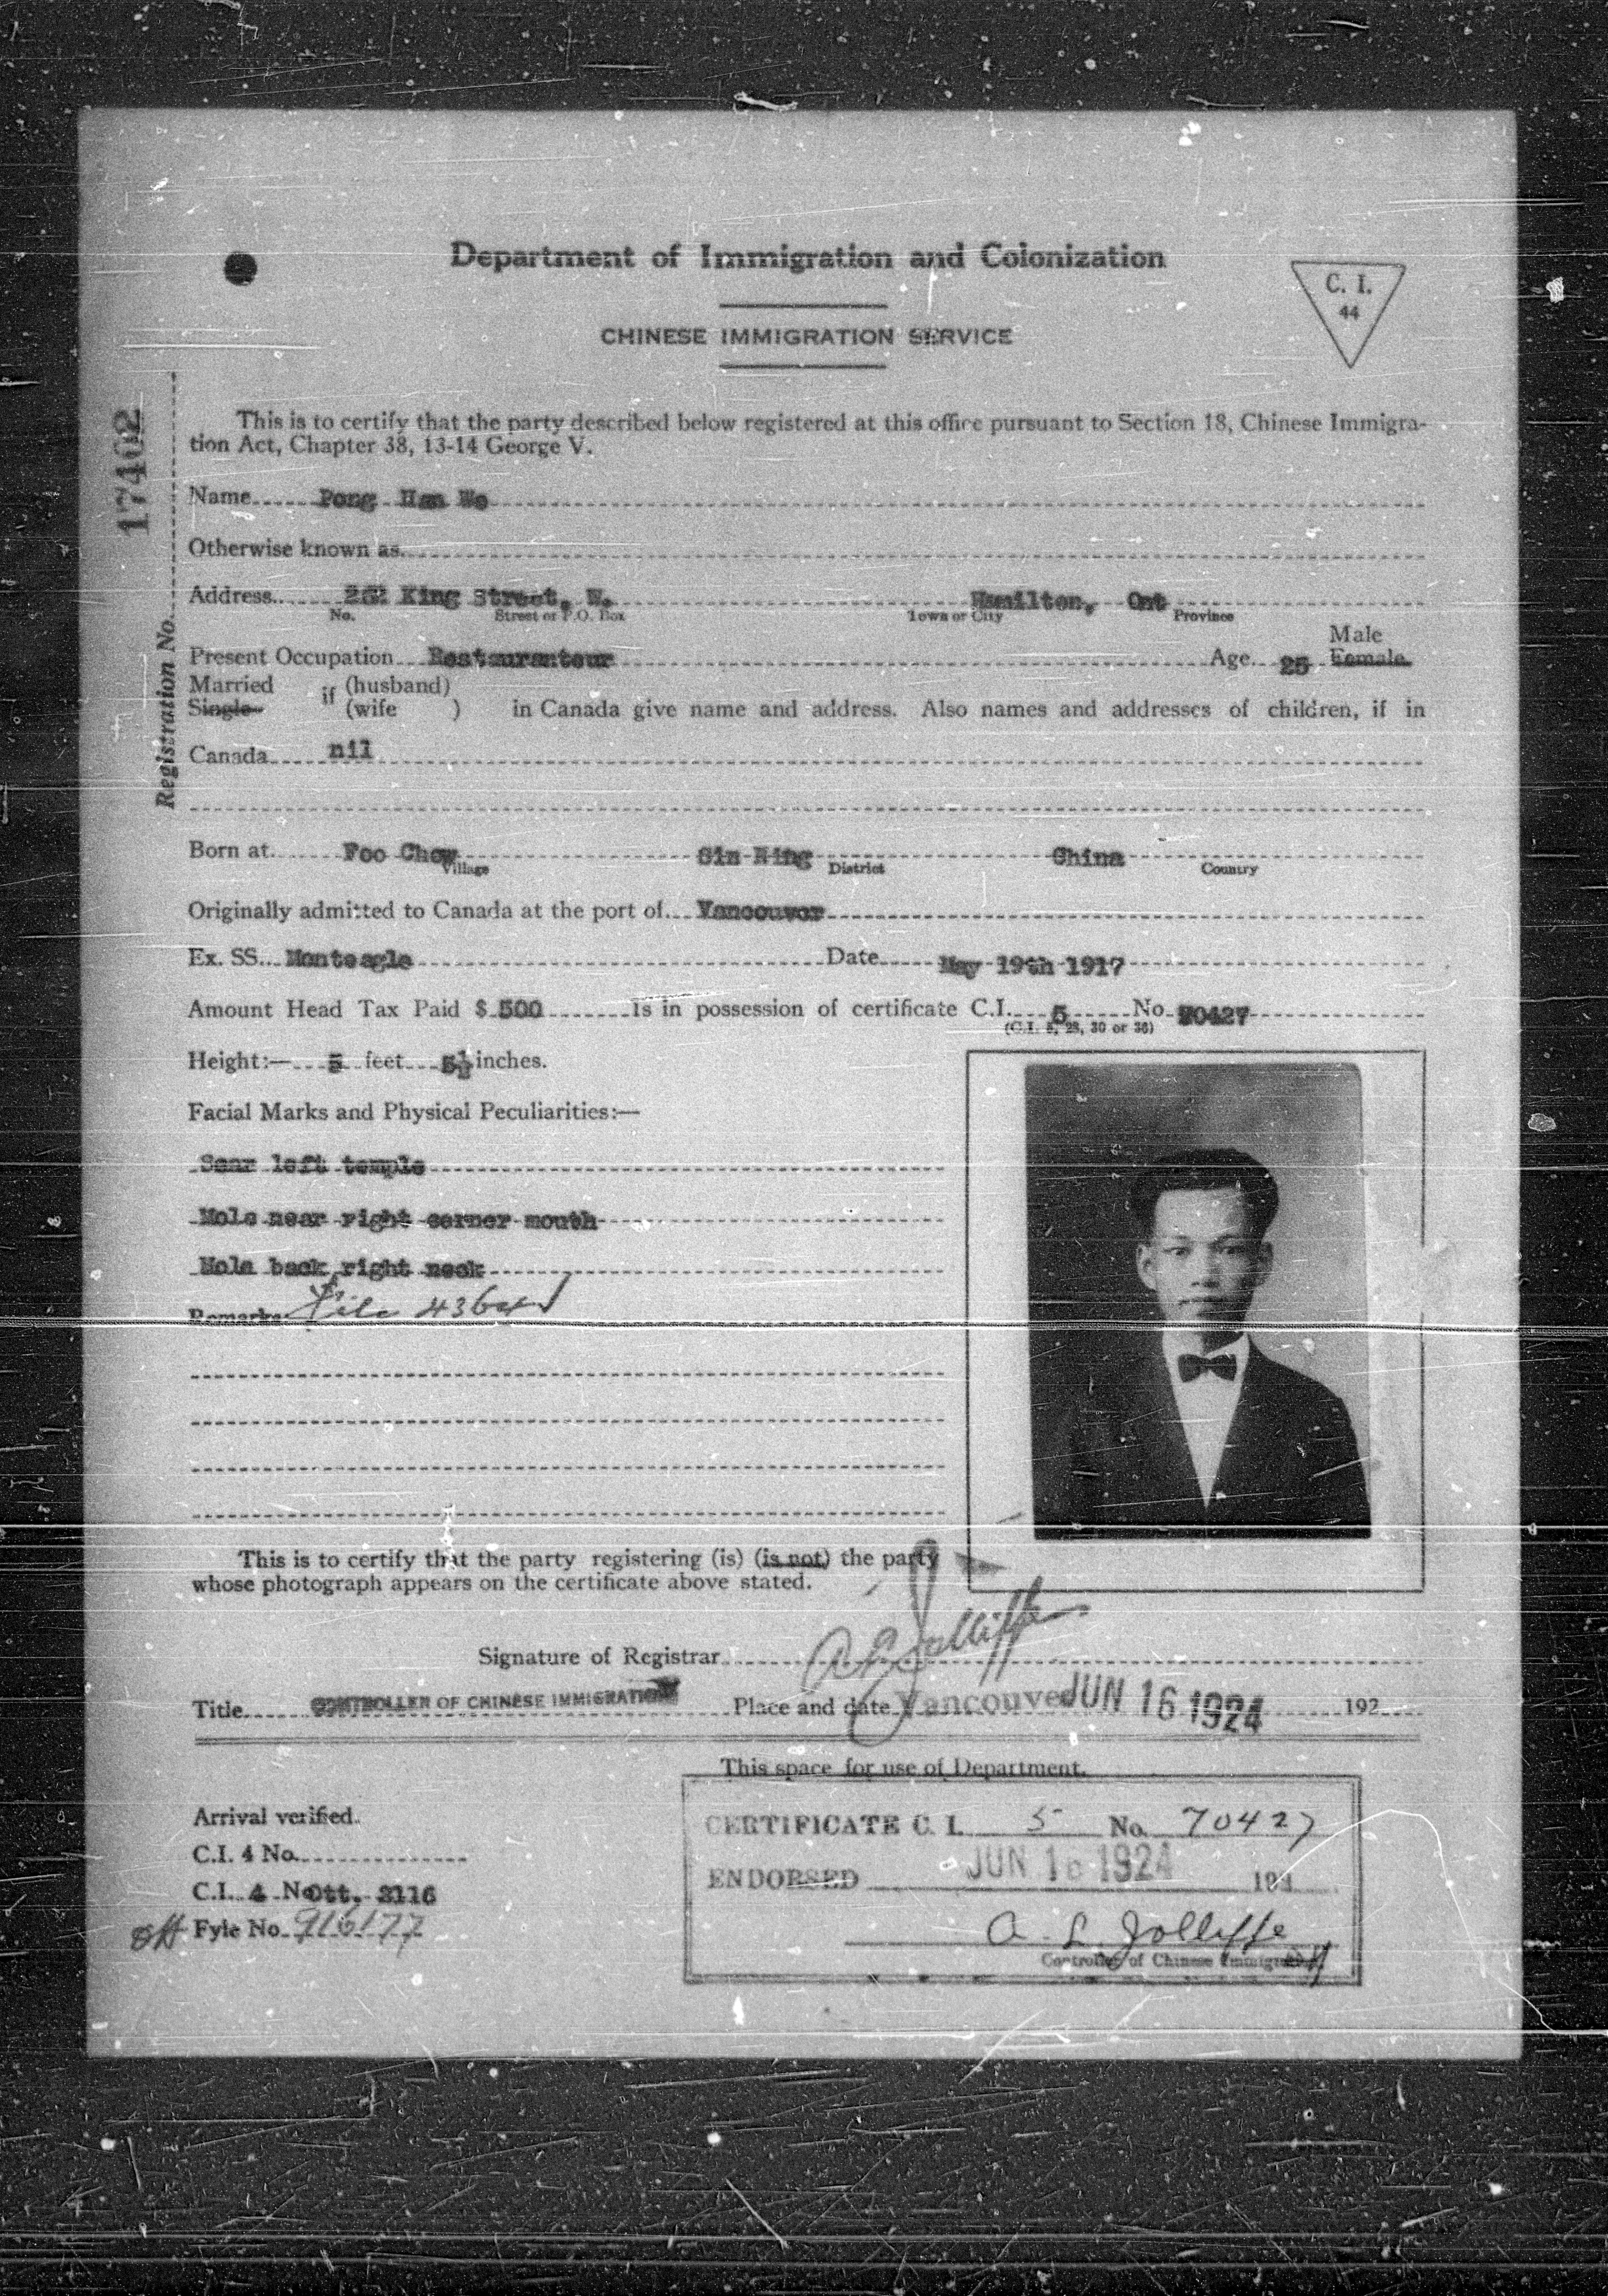 Department of Immigration and Colonization
CHINESE IMMIGRATION SERVICE
C. I.
44
17402
Registration No.
This is to certify that the party described below registered at this office pursuant to Section 18, Chinese Immigra-
tion Act, Chapter 38, 13-14 George V.
Name Pong Han We
Otherwise known as
Address King Street, W. Hamilton, Ont
No. Street or P.O. Box Town or City Province
Present Occupation Restauranteur Age 25 Male Female
Married Single if (husband) (wife ) in Canada give name and address. Also names and addresses of children, if in
Canada nil
Born at Foo Chow Sin Ning China
Village District Country
Originally admitted to Canada at the port of Vancouver
Ex. SS. Monteagle Date May 19th 1917
Amount Head Tax Paid $ 500 Is in possession of certificate C.I. 5 No. 70427
(C.I. 5, 28, 30 or 36)
Height:— 5 feet 5½ inches.
Facial Marks and Physical Peculiarities:—
Scar left temple
Mole near right corner mouth
Mole back right neck
Remarks File 4364
This is to certify that the party registering (is) (is not) the party
whose photograph appears on the certificate above stated.
Signature of Registrar A. L. Jolliffe
Title CONTROLLER OF CHINESE IMMIGRATION Place and date Vancouver JUN 16 1924 192
This space for use of Department.
Arrival verified.
C.I. 4 No.
C.I. 4 No Ott. 3116
Fyle No. 916177
CERTIFICATE C. I. 5 No. 70427
ENDORSED JUN 16 1924 192
A. L. Jolliffe
Controller of Chinese Immigration